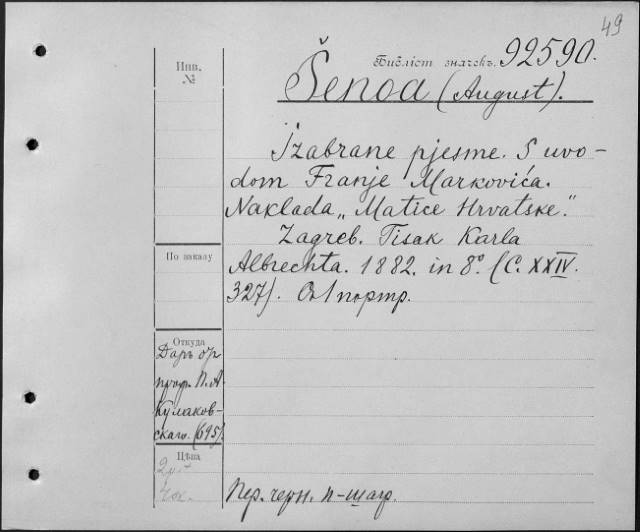 49
Библіот. значекъ. 92590.
Инв.
№
Šenoa (August).
Izabrane pjesme. S uvo-
dom Franje Markovića.
Naklada „Matice Hrvatske."
Zagreb. Tisak Karla
По заказу
Albrechta. 1882. in 8º. (C. XXIV.
327). Съ 1 портр.
Откуда
Даръ
проф. П. А.
Кулаков-
скаго. (695).
Цѣна
Пер. черн. п-шагр.